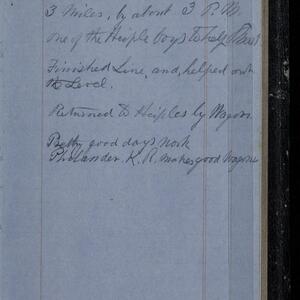 3 Miles, by about 3 P.M
one of the Heiple boys to help
Finished Line, and, helped out
Level.
Returned to Heiples by Wagon
good days work
Philander. K. R. makes good Wagons